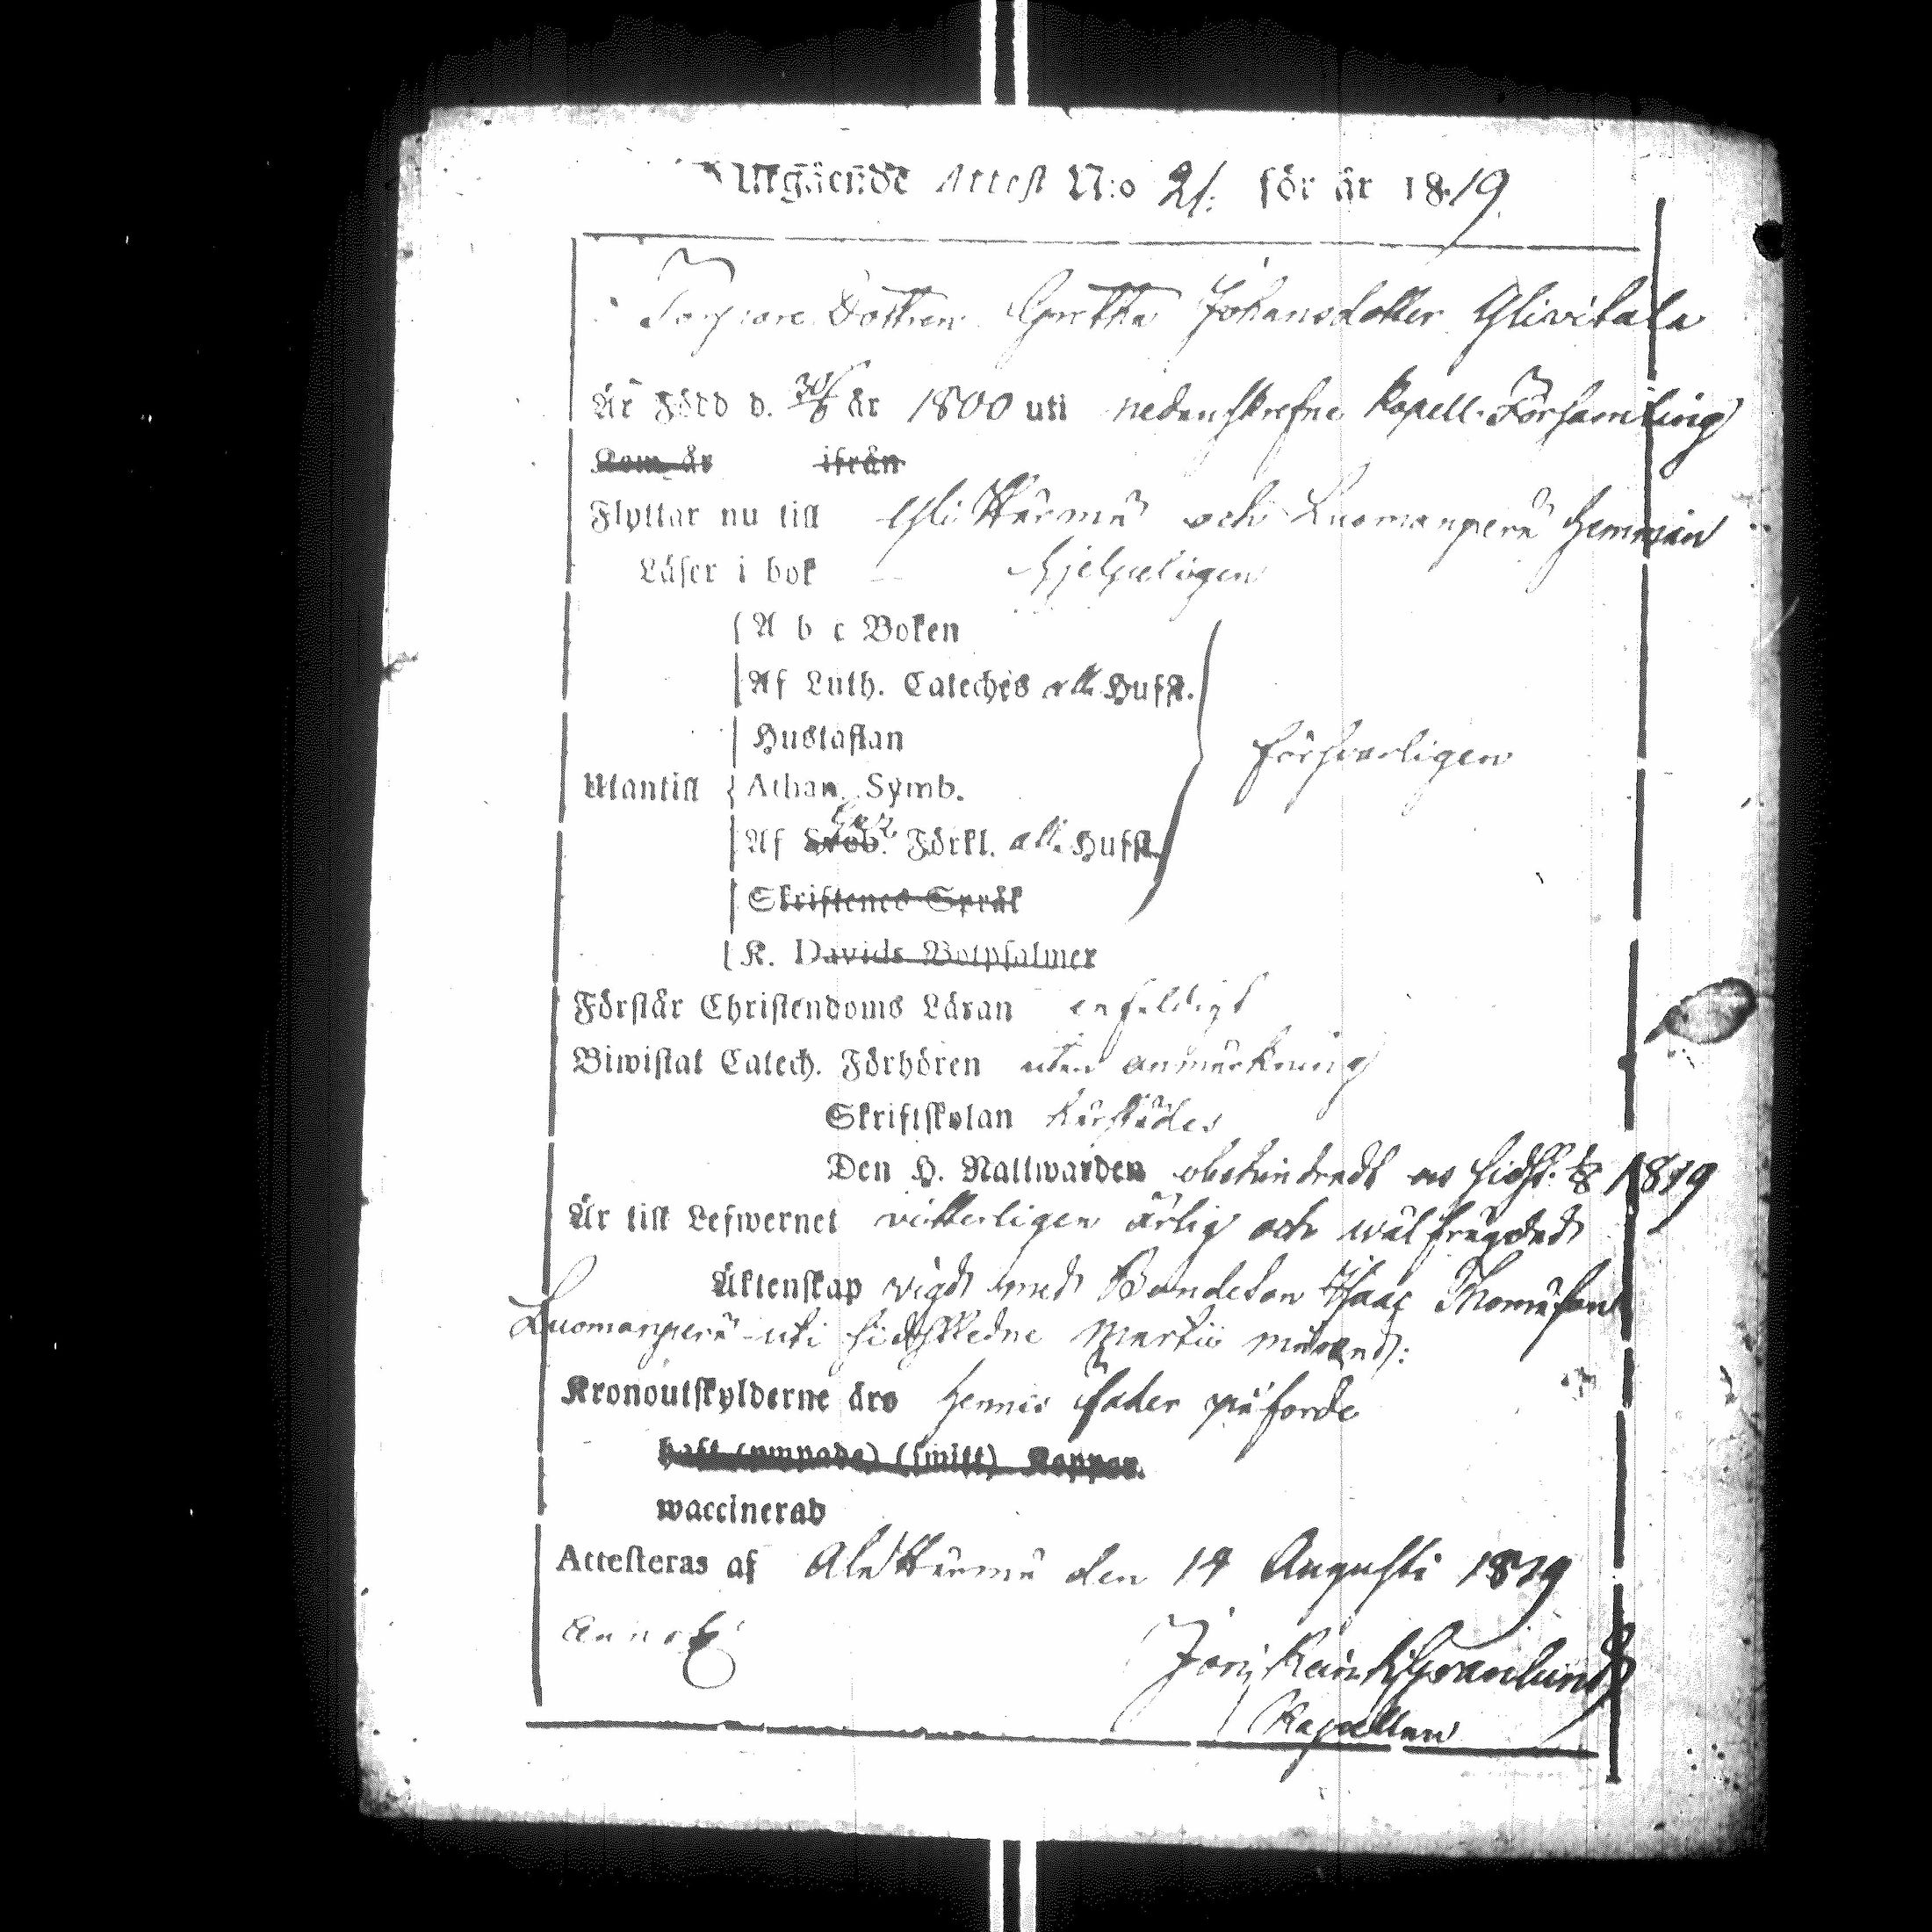 Utgående Attest N:o 21. för år 1819.
Torpare Dottren Gretha Johansdotter Ylivitala
Är Född d. 30/6 år 1800 uti nedanskrefne Kapell-Församling
Kom år ifrån
Flyttar nu till Yli Härmä och Luomanperä Hemman
Läser i bok hjelpeligen
A b c Boken
Af Luth. Cateches alla Hufst.
Hustaflan
försvarligen
Utantill Athan. Symb.
Af Sveb. Förkl. alla Hufst.
Skriftenes Språk
K. Davids Botpsalmer
Förstår Christendoms Läran enfaldigt
Biwistat Catech. Förhören utan anmärkning
Skriftskolan härstädes
Den H. Nattwarden obehindradt sidst. 1819
Är till Lefwernet vitterligen ärlig och wälfrägdad
Äktenskap vigd med Bondeson Isaac Thomasson
Luomanperä uti sidstledne Martii månad:
Kronoutskylderne äro hennes fader påförde
haft (ympade) (smitt) Koppor.
waccinerad
Attesteras af Ala Härmä den 14 Augusti 1819
Annot.
Granlund
Kapellan